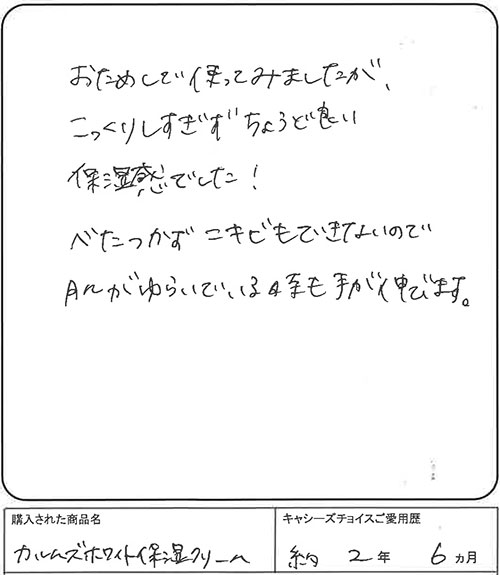 おためしで使ってみましたが、
こっくりしすぎずちょうど良い
保湿感でした!
べたつかずニキビもできないので
肌がゆらいでいる時も手が伸びます。
購入された商品名
キャシーズチョイスご愛用歴
カルムズホワイト保湿クリーム
約 2 年 6 カ月